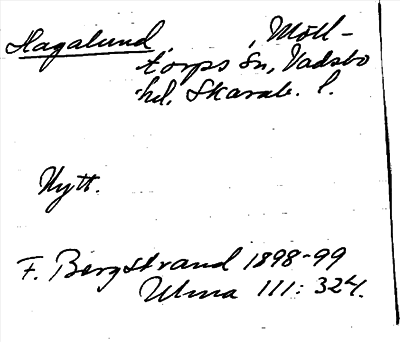 Hagalund, Möll-
torps Sn, Vadsbo
hd, Skarab. l.
Nytt.
F. Bergstrand 1898-99
Ulma 111: 324.